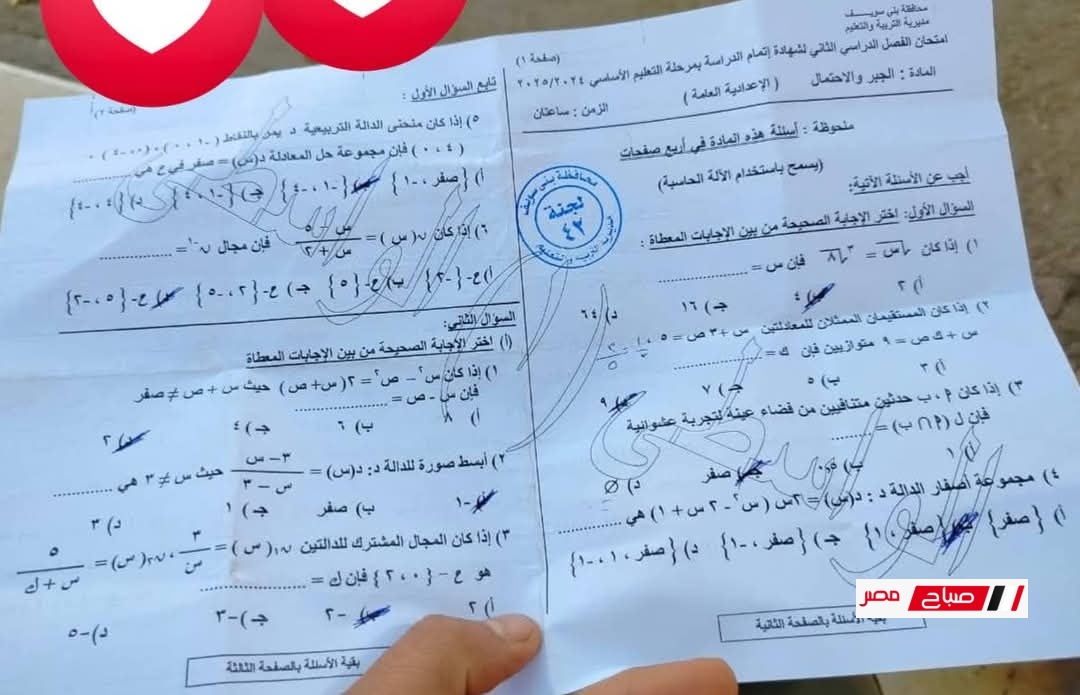 محافظة بني سويف
مديرية التربية والتعليم
امتحان الفصل الدراسي الثاني لشهادة إتمام الدراسة بمرحلة التعليم الأساسي ٢٠٢٥/٢٠٢٤
(صفحة ١)
المادة : الجبر والاحتمال
( الإعدادية العامة )
الزمن : ساعتان
ملحوظة : أسئلة هذه المادة في أربع صفحات
(يسمح باستخدام الآلة الحاسبة)
أجب عن الأسئلة الآتية:
السؤال الأول: اختر الإجابة الصحيحة من بين الإجابات المعطاة :
١) إذا كان √س = ∛٨ فإن س = ............
أ) ٢ ب) ٤ جـ) ١٦ د) ٦٤
٢) إذا كان المستقيمان الممثلان للمعادلتين س + ٣ ص = ٥ ،
س + ك ص = ٩ متوازيين فإن ك = ............
أ) ٣ ب) ٥ جـ) ٧ د) ٩
٣) إذا كان ٢ ، ب حدثين متنافيين من فضاء عينة لتجربة عشوائية
فإن ل (٢ ∩ ب) = ............
أ) ١ ب) ٠,٥ جـ) صفر د) ∅
٤) مجموعة أصفار الدالة د : د(س) = ٢س ( س٢ - ٢ س + ١ ) هي ............
أ) {صفر} ب) {صفر ، ١} جـ) {صفر ، -١} د) {صفر ، ١ ، -١}
بقية الأسئلة بالصفحة الثانية
محافظة بني سويف
لجنة
٤٢
(صفحة ٢)
تابع السؤال الأول :
٥) إذا كان منحنى الدالة التربيعية د يمر بالنقاط ( -١ ، ٠ ) ، ( ٠ ، -٤ ) ،
( ٤ ، ٠ ) فإن مجموعة حل المعادلة د(س) = صفر في ح هي ............
أ) {صفر ، -١} ب) {-١ ، -٤} جـ) {-١ ، ٤} د) {٤ ، -٤}
٦) إذا كان ن( س ) = س - ٥ / س + ٢ فإن مجال ن-١ = ............
أ) ح-{-٢} ب) ح-{٥} جـ) ح-{٢ ، -٥} د) ح-{٥ ، -٢}
السؤال الثاني:
(أ) اختر الإجابة الصحيحة من بين الإجابات المعطاة
١) إذا كان س٢ - ص٢ = ٢( س+ ص ) حيث س + ص ≠ صفر
فإن س - ص = ............
أ) ٨ ب) ٦ جـ) ٤ د) ٢
٢) أبسط صورة للدالة د: د(س) = ٣ - س / س - ٣ حيث س ≠ ٣ هي ............
أ) -١ ب) صفر جـ) ١ د) ٣
٣) إذا كان المجال المشترك للدالتين ن١( س ) = ٣ / س ، ن٢( س) = ٥ / س + ك
هو ح - {٠ ، ٢} فإن ك = ............
أ) ٢ ب) -٢ جـ) -٣ د) -٥
بقية الأسئلة بالصفحة الثالثة
صباح مصر